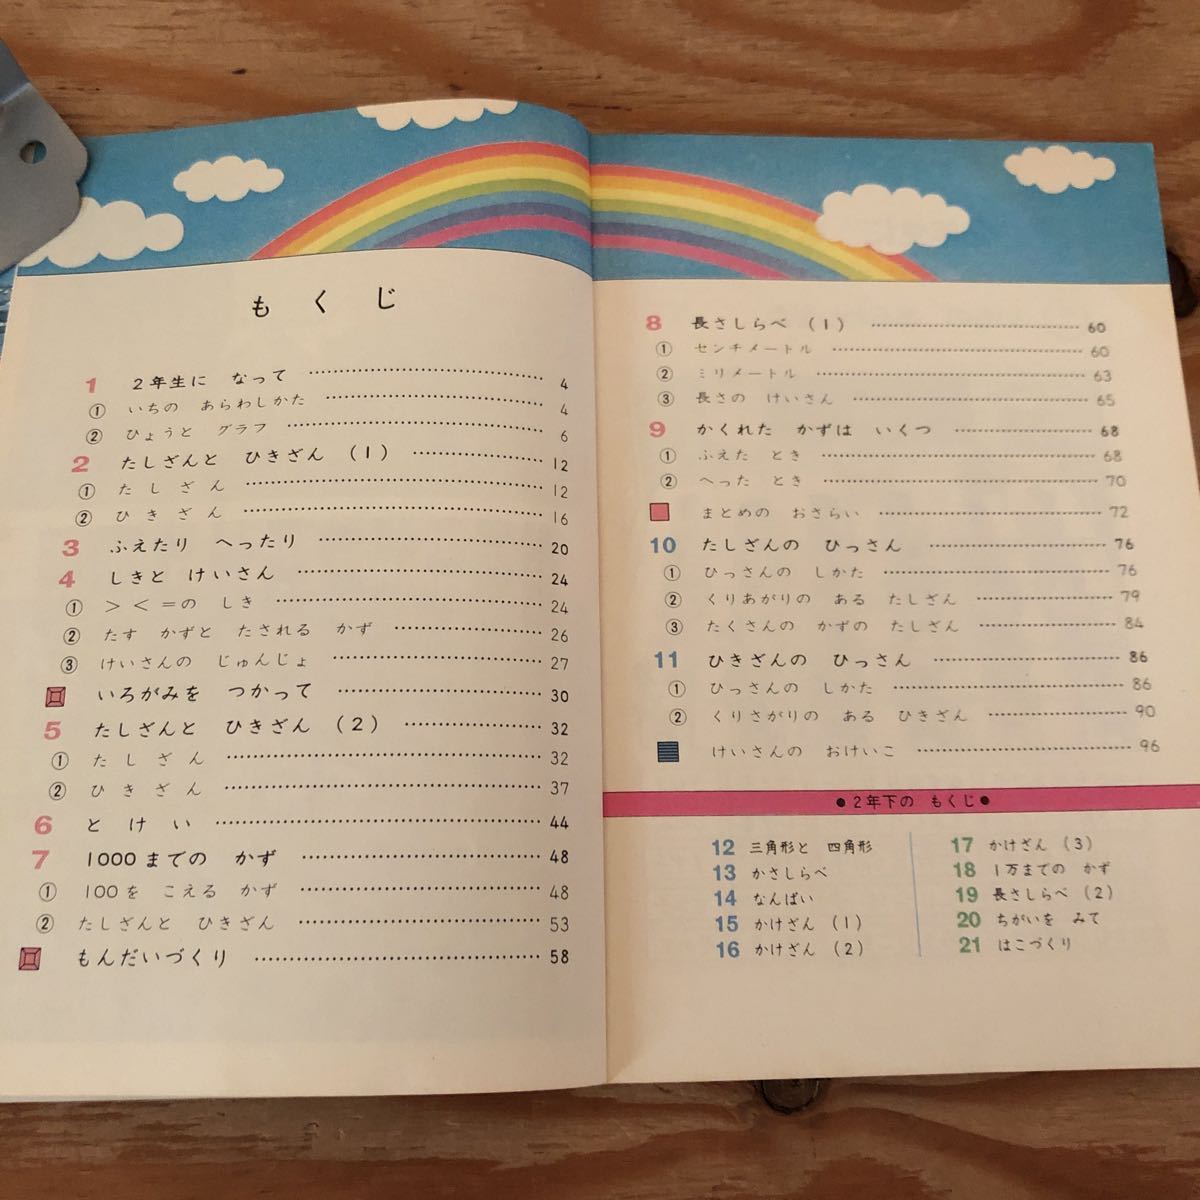 もくじ
1 2年生に なって 4
① いちの あらわしかた 4
② ひょうと グラフ 6
2 たしざんと ひきざん (1) 12
① たしざん 12
② ひきざん 16
3 ふえたり へったり 20
4 しきと けいさん 24
① ><=の しき 24
② たす かずと たされる かず 26
③ けいさんの じゅんじょ 27
いろがみを つかって 30
5 たしざんと ひきざん (2) 32
① たしざん 32
② ひきざん 37
6 とけい 44
7 1000までの かず 48
① 100を こえる かず 48
② たしざんと ひきざん 53
もんだいづくり 58
8 長さしらべ (1) 60
① センチメートル 60
② ミリメートル 63
③ 長さの けいさん 65
9 かくれた かずは いくつ 68
① ふえた とき 68
② へった とき 70
まとめの おさらい 72
10 たしざんの ひっさん 76
① ひっさんの しかた 76
② くりあがりの ある たしざん 79
③ たくさんの かずの たしざん 84
11 ひきざんの ひっさん 86
① ひっさんの しかた 86
② くりさがりの ある ひきざん 90
けいさんの おけいこ 96
●2年下の もくじ●
12 三角形と 四角形
13 かさしらべ
14 なんばい
15 かけざん (1)
16 かけざん (2)
17 かけざん (3)
18 1万までの かず
19 長さしらべ (2)
20 ちがいを みて
21 はこづくり